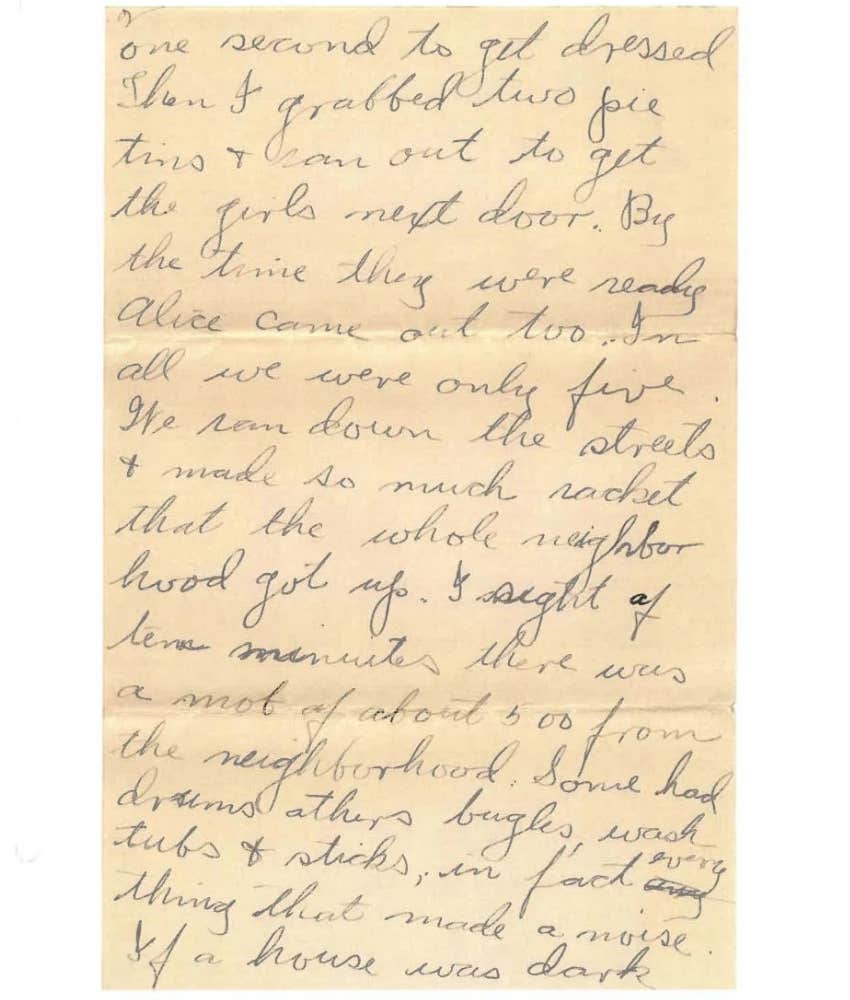 one second to get dressed
Then I grabbed two pie
tins & ran out to get
the girls next door. By
the time they were ready
Alice came out too. In
all we were only five.
We ran down the streets
& made so much racket
that the whole neighbor
hood got up. I sight of
ten minuites there was
a mob of about 500 from
the neighborhood. Some had
drums others bugles, wash
tubs & sticks, in fact every
thing that made a noise.
If a house was dark